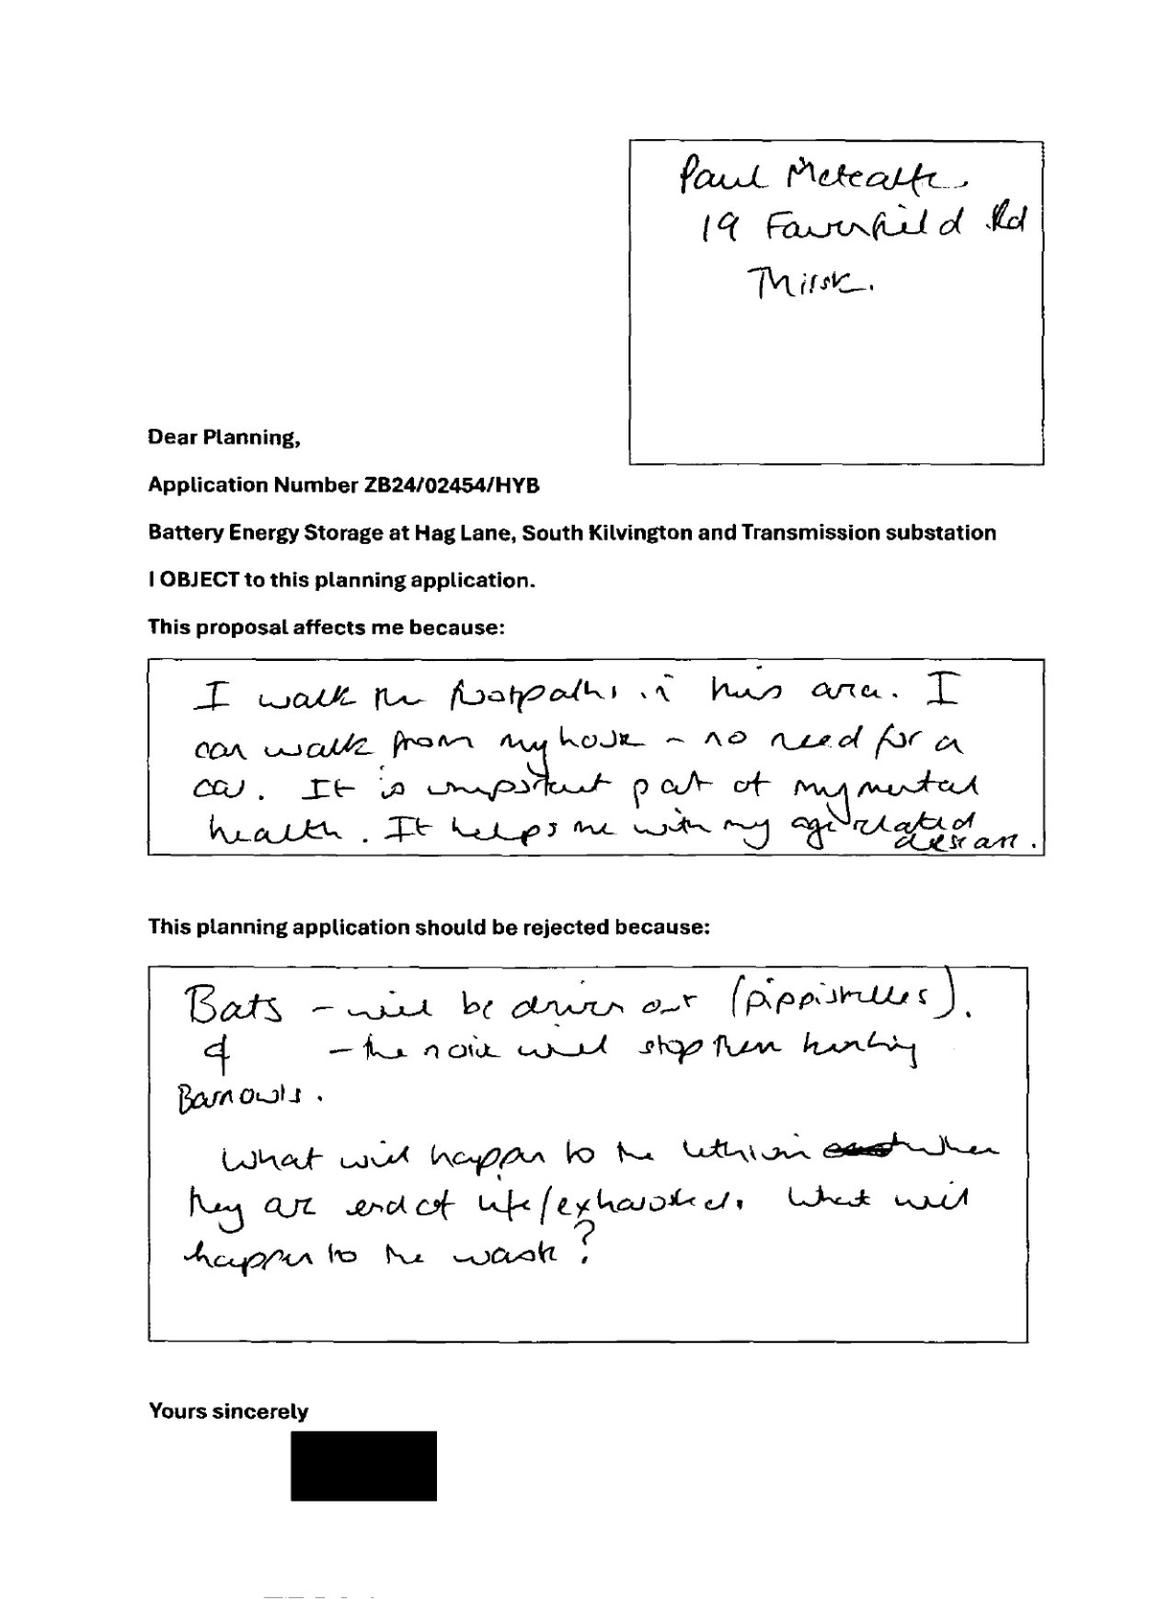 Paul Metcalfe.
19 Faverfield Rd
Thirsk.
Dear Planning,
Application Number ZB24/02454/HYB
Battery Energy Storage at Hag Lane, South Kilvington and Transmission substation
I OBJECT to this planning application.
This proposal affects me because:
I walk the footpaths in this area. I
can walk from my house - no need for a
car. It is important part of my mental
health. It helps me with my age related
disease.
This planning application should be rejected because:
Bats - will be driven out (pippistrelles).
& - the noise will stop them hunting
Barn owls.
What will happen to the lethium when
they are end of life/exhausted. What will
happen to the waste?
Yours sincerely